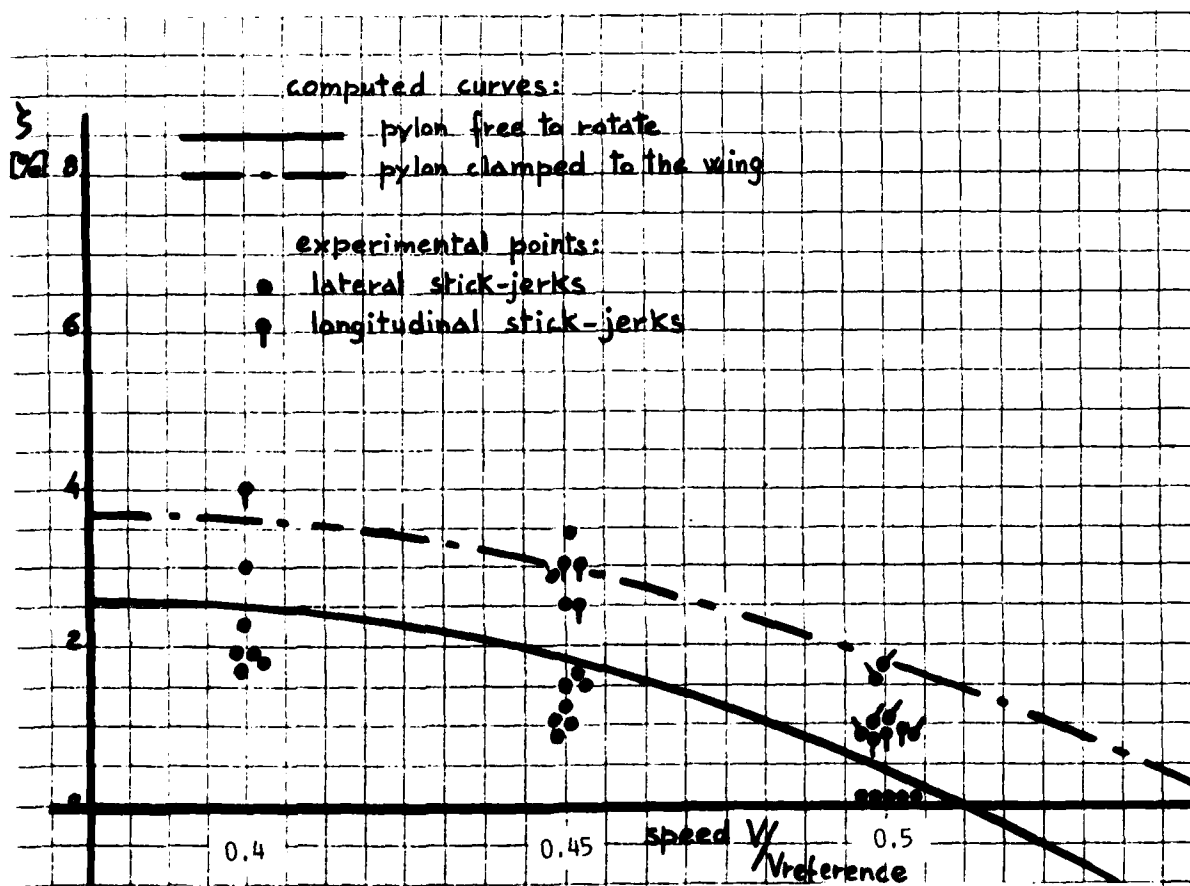 computed curves:
ζ
pylon free to rotate
[%] 8
pylon clamped to the wing
experimental points:
lateral stick-jerks
6
longitudinal stick-jerks
4
2
0
speed V/Vreference
0.4
0.45
0.5